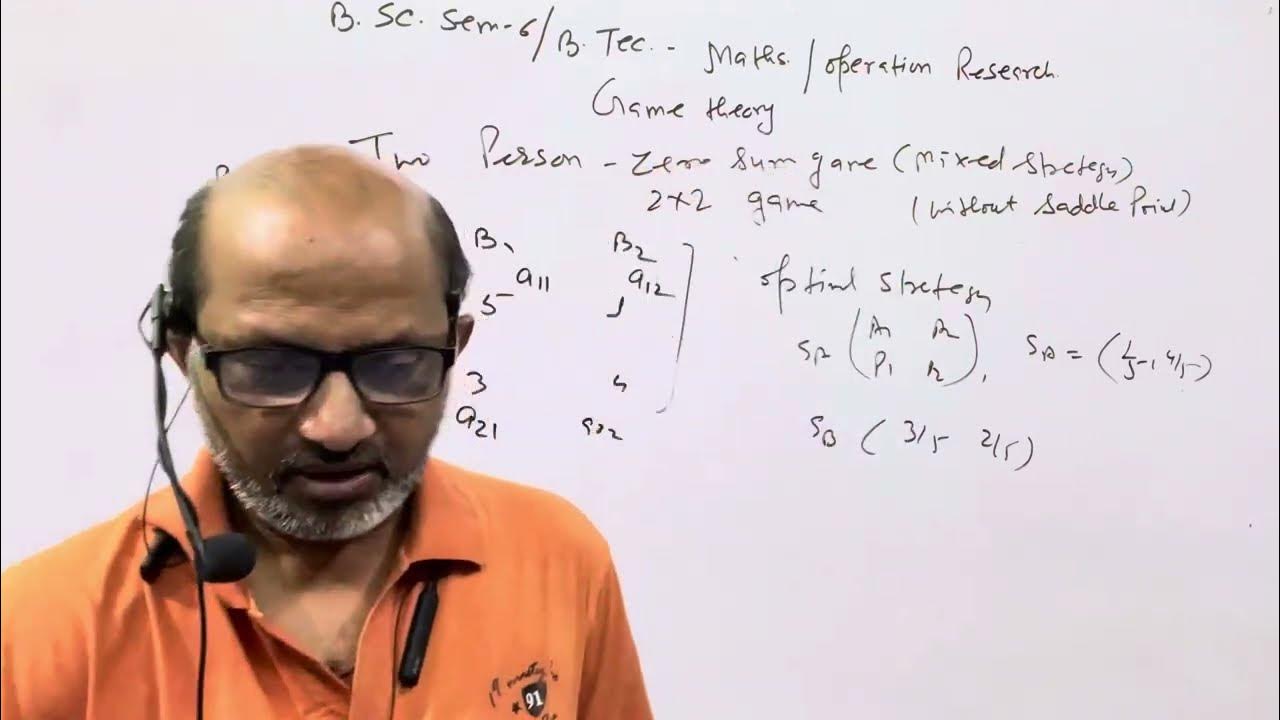 B. Sc. Sem-6/B. Tec. - Maths / operation Research
Game theory
Two Person - Zero sum game (Mixed Stretegy)
2×2 game (without Saddle Point)
B₁ B₂
a₁₁ a₁₂
5 1
3 4
a₂₁ a₂₂
optimal stretegy
S_A = (1/5, 4/5)
S_B ( 3/5 2/5)
91